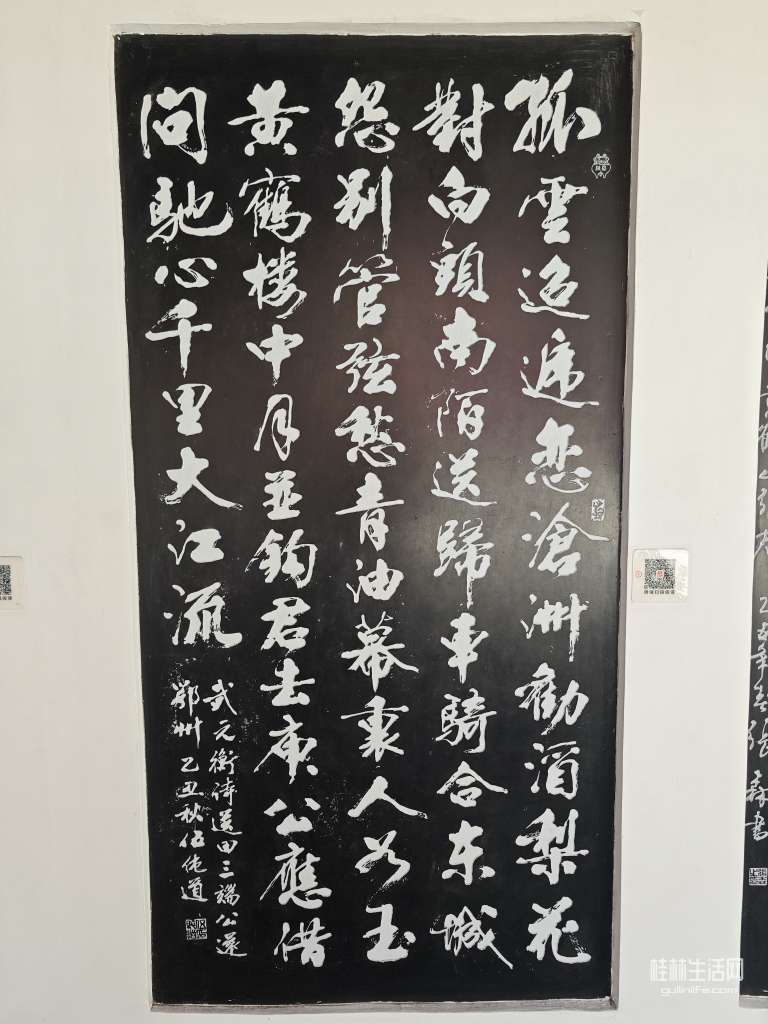 孤雲迢遞恋滄洲勸酒梨花
對白頭南陌送歸車騎合东城
怨别管弦愁青油幕裏人如玉
黄鶴楼中月並鈎君去庾公應借
問馳心千里大江流
武元衡詩送田三端公還
鄂州乙丑秋伍純道
張森書
桂林生活网
guilinlife.com